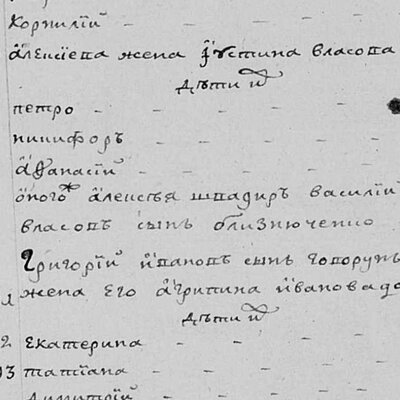 корнилїй
алеѯіева жена іустина власова
дѣти и҆х
петро
никифоръ
афанасїй
оного алеѯѣя швагиръ василїй
власовъ сынъ близнюченко
григорїй ивановъ сынъ говорунъ
жена его агрипина иванова до
дѣти и҆х
2 екатерина
13 татїана
димитрїй